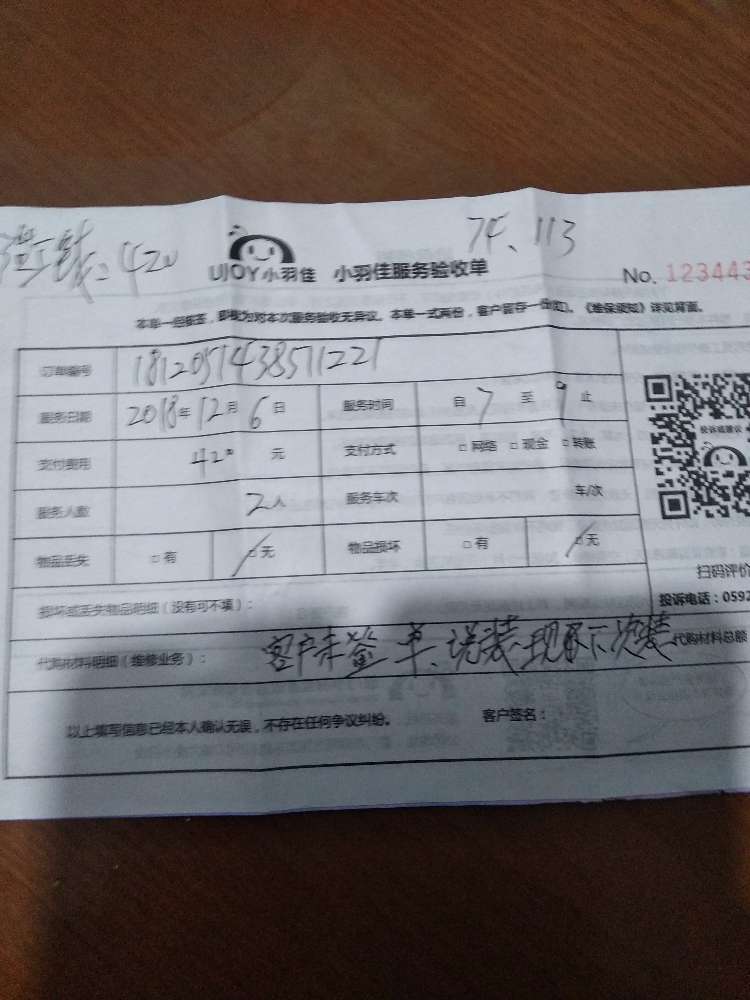 =420
7F、113
UJOY小羽佳 小羽佳服务验收单
No. 123443
本单一经核签，即视为对本次服务验收无异议。本单一式两份，客户留存一份。《维保须知》详见背面。
订单编号 1812051438511221
服务日期 2018年12月6日 服务时间 自7至9止
支付费用 420元 支付方式 □网络 □现金 □转账
投诉或建议
服务人数 2人 服务车次 车/次
物品丢失 □有 □无 物品损坏 □有 □无
扫码评价
损坏或丢失物品明细（没有可不填）：
投诉电话：0592
代购材料明细（维修业务）： 客户未签单、说装、现 下次装 代购材料总额
以上填写信息已经本人确认无误，不存在任何争议纠纷。 客户签名：